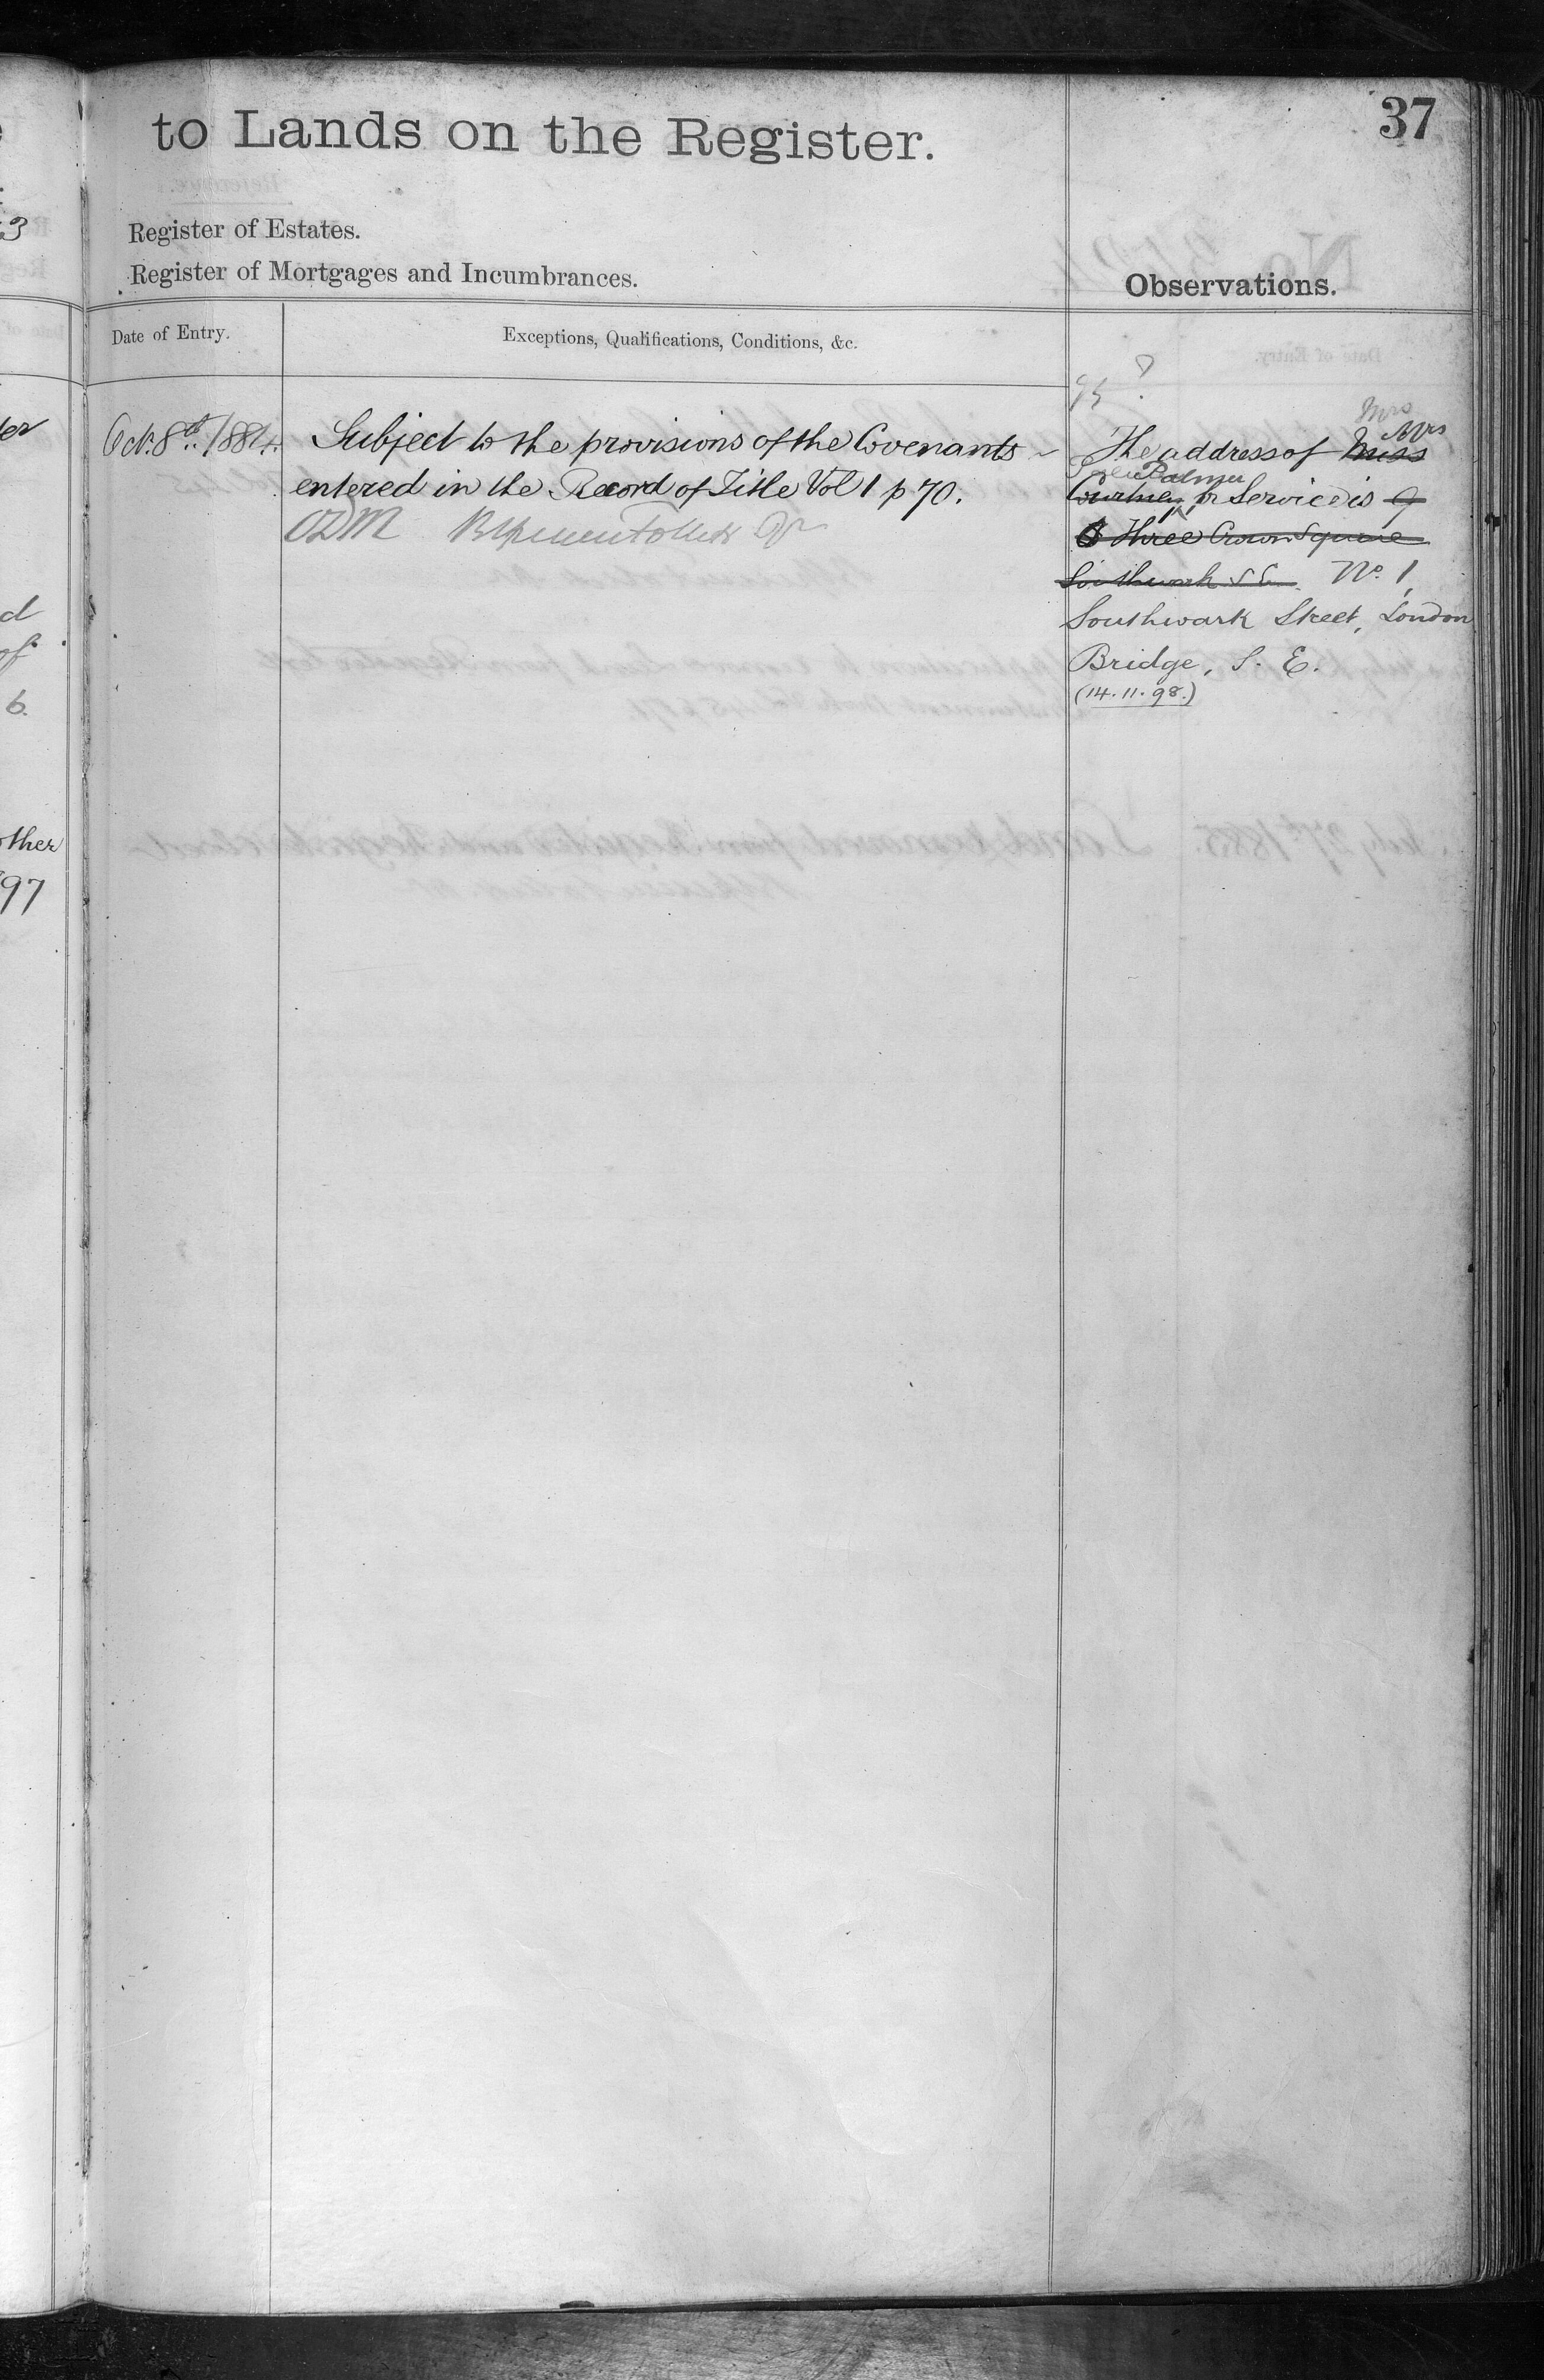 to Lands on the Register.
37
Register of Estates.
Register of Mortgages and Incumbrances.
Observations.
Date of Entry.
Exceptions, Qualifications, Conditions, &c.
Oct. 8th 1884.
Subject to the provisions of the Covenants
entered in the Record of Title Vol 1 p 70.
Mrs
Mrs
The address of Miss
Palmer
Courtney for Service is 9
Three Crown Square
Southwark S E. No. 1,
Southwark Street, London
Bridge, S. E.
(14.11.98.)
3
d
of
6.
other
97